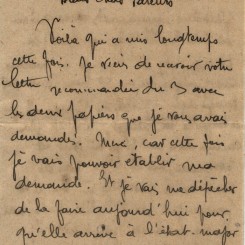 Mes chers Parents
Voilà qui a mis longtemps
cette fois. Je viens de recevoir votre
lettre recommandée du 3 avec
les demi papiers que je vous avais
demandés. Merci, car cette fois
je vais pouvoir établir ma
demande. Et je vais me dépêcher
de la faire aujourd'hui pour
qu'elle arrive à l'état-major